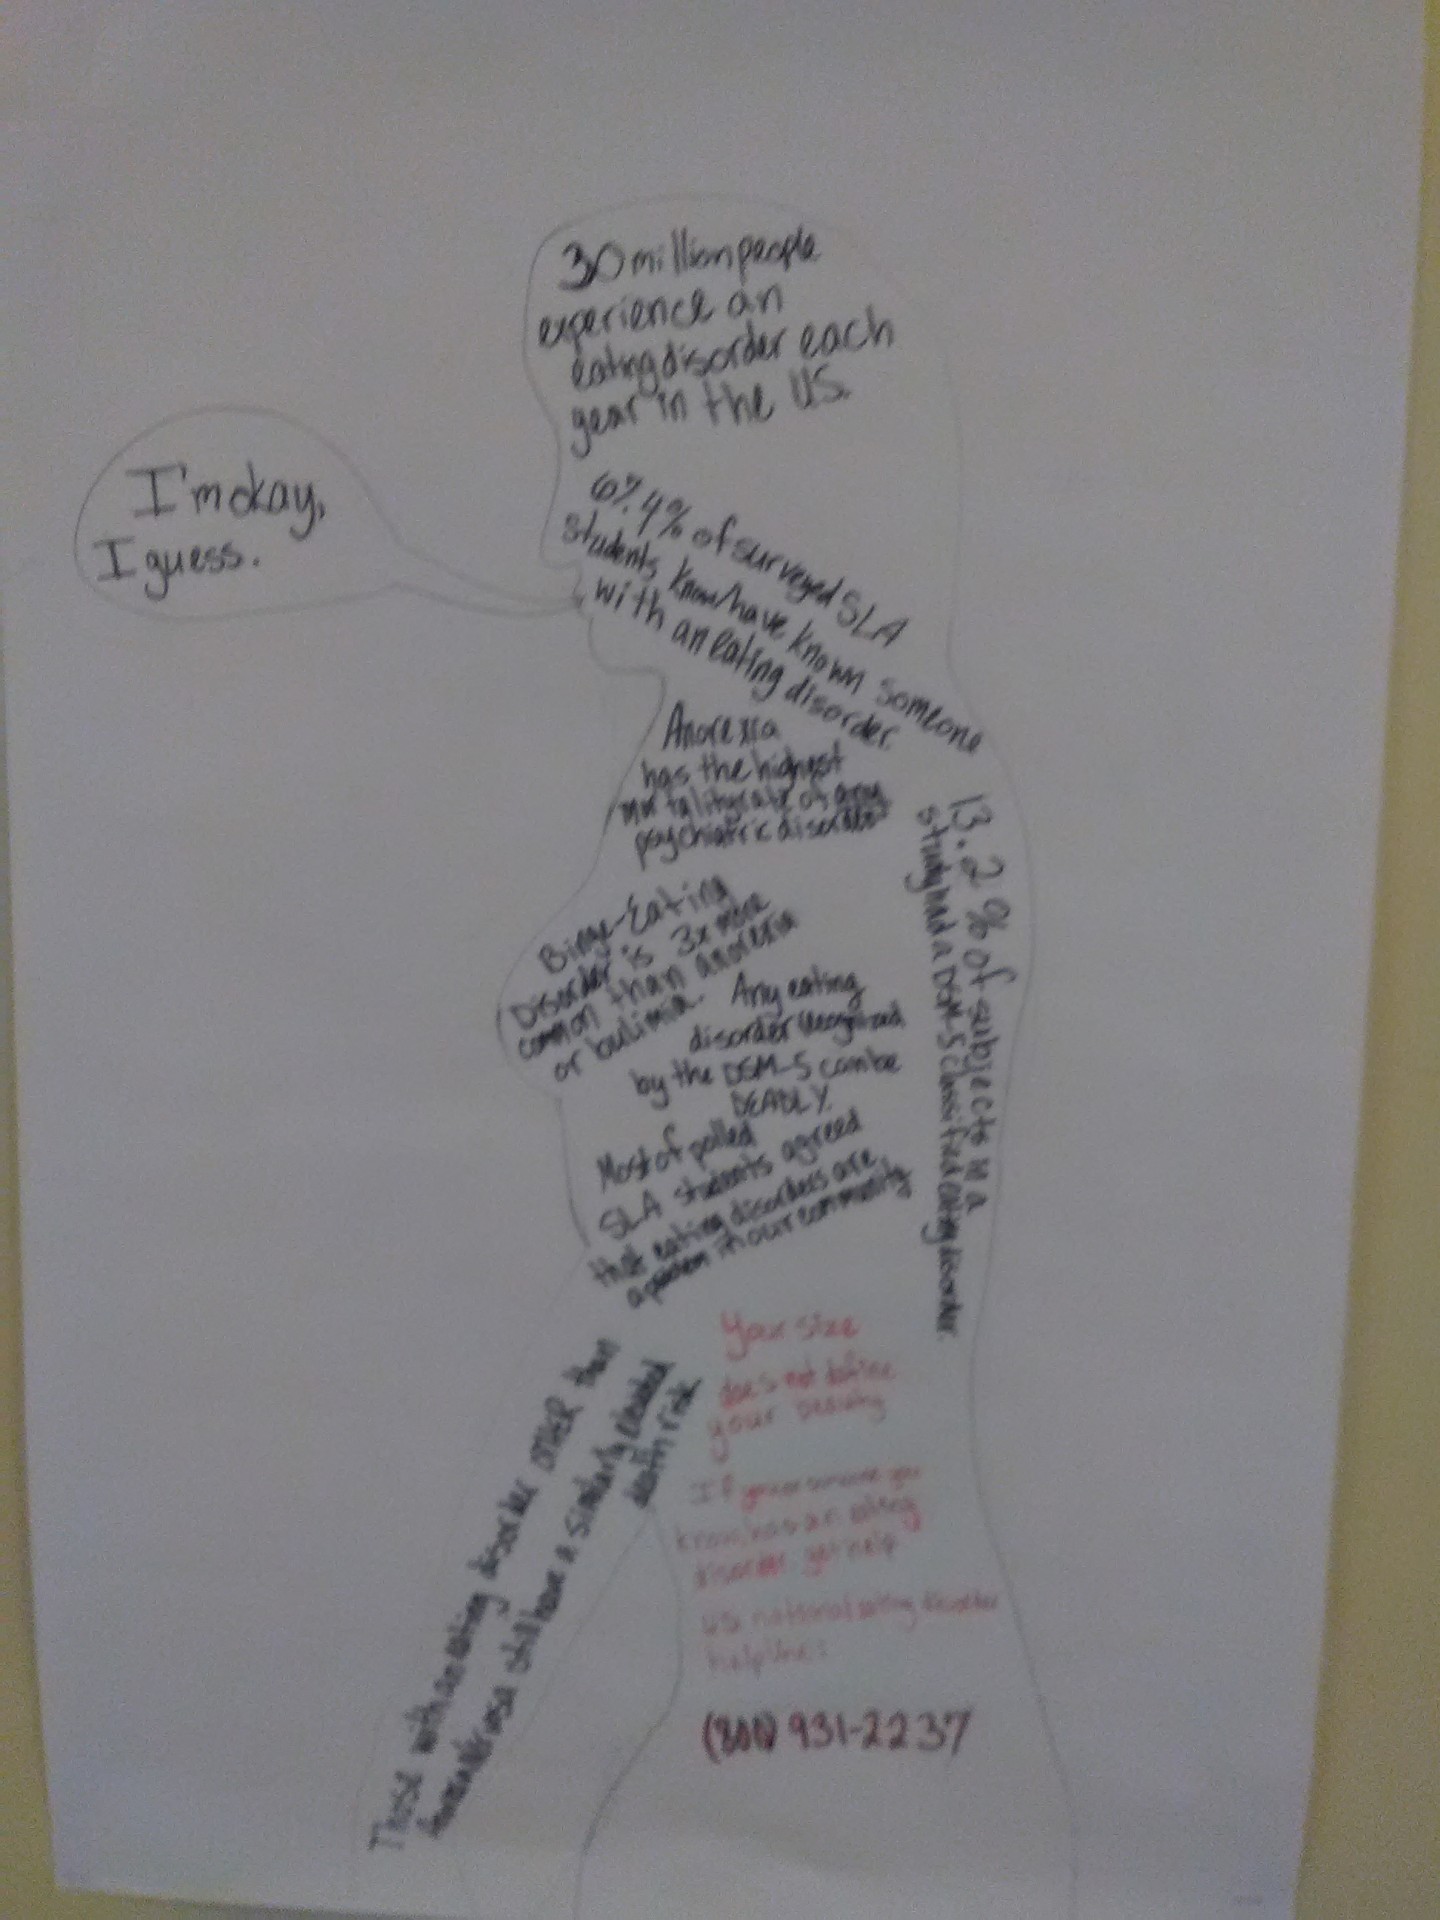 30 million people
experience an
eating disorder each
year in the US.
I'm okay,
I guess.
67.4% of surveyed SLA
students know/have known someone
with an eating disorder.
Anorexia
has the highest
mortality rate of any
psychiatric disorder
13.2% of subjects in a
study had a DSM-5 classified eating disorder.
Binge-Eating
Disorder is 3x more
common than anorexia
or bulimia.
Any eating
disorder recognized
by the DSM-5 can be
DEADLY.
Most of polled
SLA students agreed
that eating disorders are
a problem in our community
Those with an eating disorder OTHER than
still have a similarly elevated
death risk
Your size
does not define
your beauty
If you or someone you
know has an eating
disorder get help
US national eating disorder
helpline:
931-2237